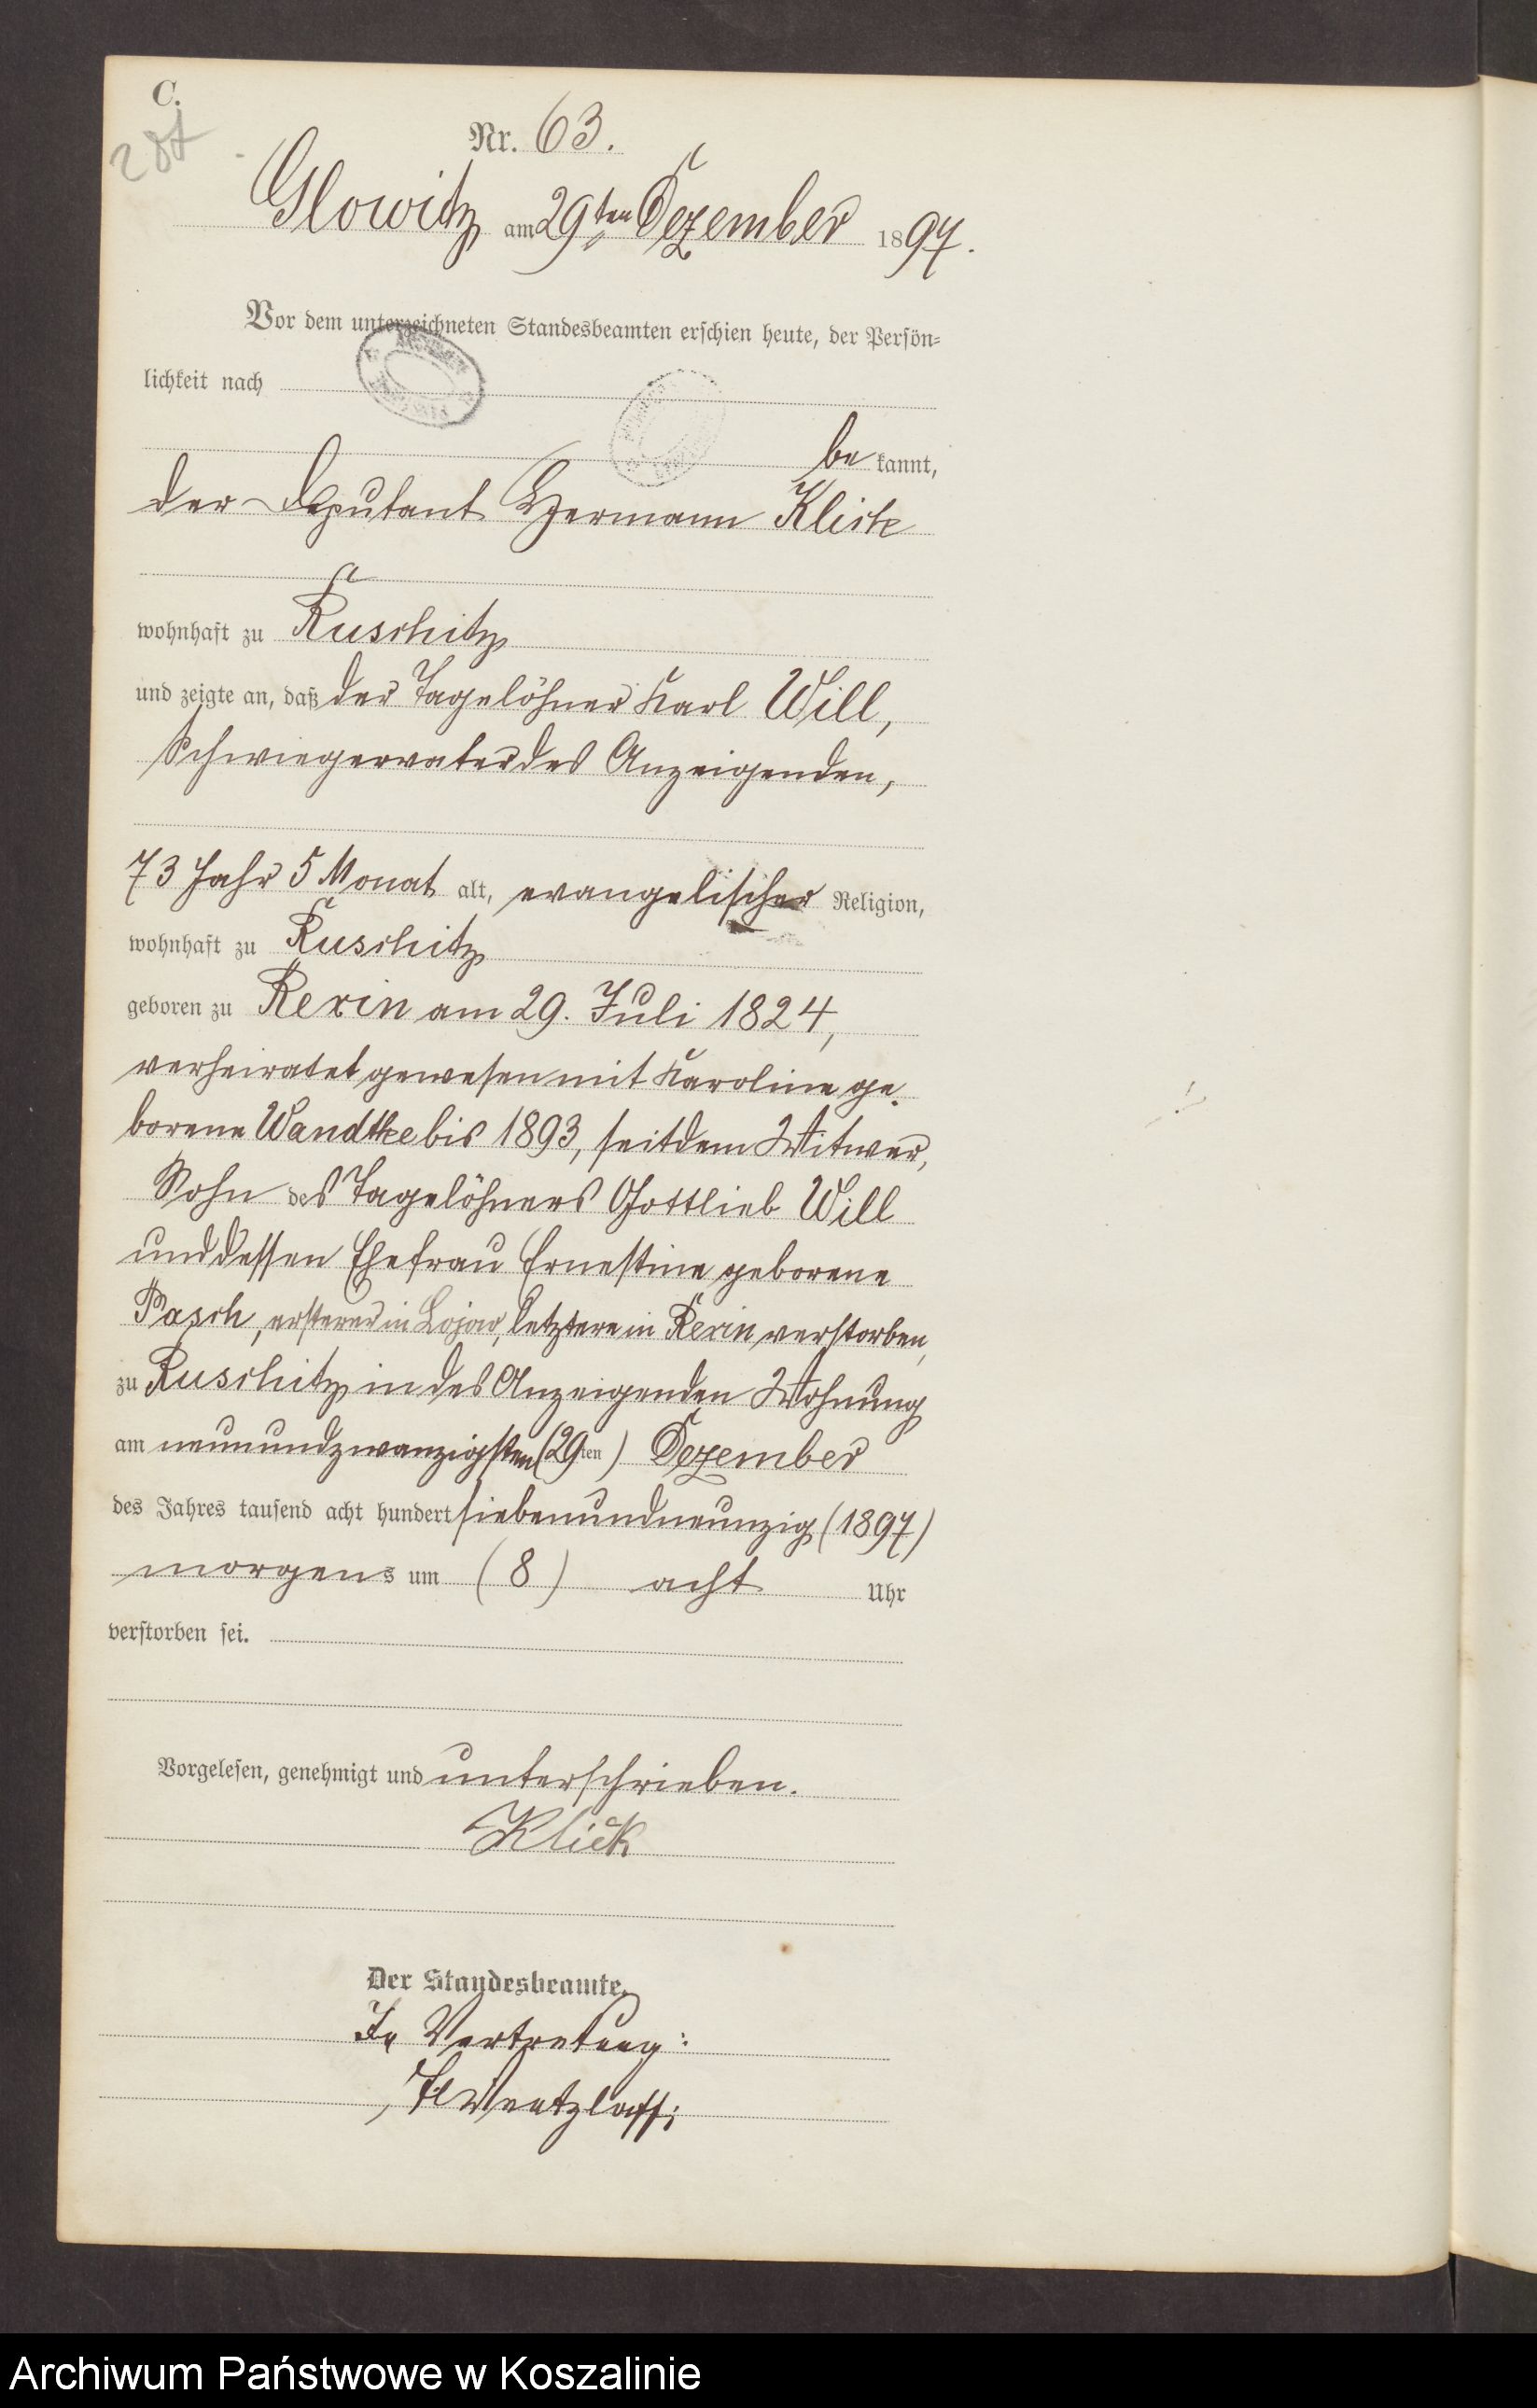 C.
287
Nr. 63.
Glowitz am 29ten Dezember 1897.
Vor dem unterzeichneten Standesbeamten erschien heute, der Persön-
lichkeit nach
be kannt,
der Deputant Hermann Klick
wohnhaft zu Ruschitz
und zeigte an, daß der Tagelöhner Karl Will,
Schwiegervater des Anzeigenden,
73 Jahr 5 Monat alt, evangelischer Religion,
wohnhaft zu Ruschitz
geboren zu Rexin am 29. Juli 1824,
verheiratet gewesen mit Karoline ge-
borene Wandtke bis 1893, seitdem Witwer,
Sohn des Tagelöhners Gottlieb Will
und dessen Ehefrau Ernestine geborene
Pasch, ersterer in Lojow, letztere in Rexin verstorben,
zu Ruschitz in des Anzeigenden Wohnung
am neunundzwanzigsten (29ten) Dezember
des Jahres tausend acht hundert siebenundneunzig (1897)
morgens um (8) acht Uhr
verstorben sei.
Vorgelesen, genehmigt und unterschrieben.
Klick
Der Standesbeamte.
In Vertretung:
Wentzlaff;
Archiwum Państwowe w Koszalinie